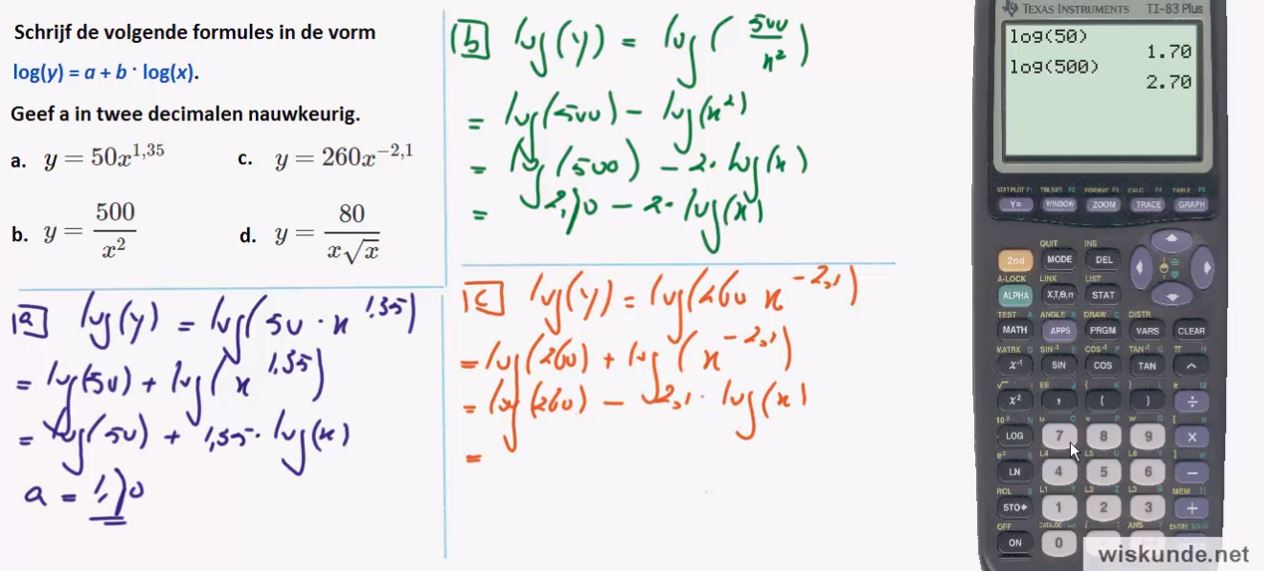 Schrijf de volgende formules in de vorm
log(y) = a + b · log(x).
Geef a in twee decimalen nauwkeurig.
a. y = 50x^1,35
c. y = 260x^−2,1
b. y = 500/x²
d. y = 80/(x√x)
a log(y) = log(50 · x^1,35)
= log(50) + log(x^1,35)
= log(50) + 1,35 · log(x)
a = 1,70
b log(y) = log(500/x²)
= log(500) − log(x²)
= log(500) − 2 · log(x)
= 2,70 − 2 · log(x)
c log(y) = log(260 x^−2,1)
= log(260) + log(x^−2,1)
= log(260) − 2,1 · log(x)
=
TEXAS INSTRUMENTS TI-83 Plus
log(50)
1.70
log(500)
2.70
STAT PLOT F1 TBLSET F2 FORMAT F3 CALC F4 TABLE F5
Y= WINDOW ZOOM TRACE GRAPH
QUIT INS
2nd MODE DEL
A-LOCK LINK LIST
ALPHA X,T,θ,n STAT
TEST A ANGLE B DRAW C DISTR
MATH APPS PRGM VARS CLEAR
MATRX D SIN⁻¹ E COS⁻¹ F TAN⁻¹ G π H
x⁻¹ SIN COS TAN ^
x² , ( ) ÷
LOG 7 8 9 ×
LN 4 5 6 −
RCL
STO▸ 1 2 3 +
OFF CATALOG ANS ENTRY SOLVE
ON 0
wiskunde.net